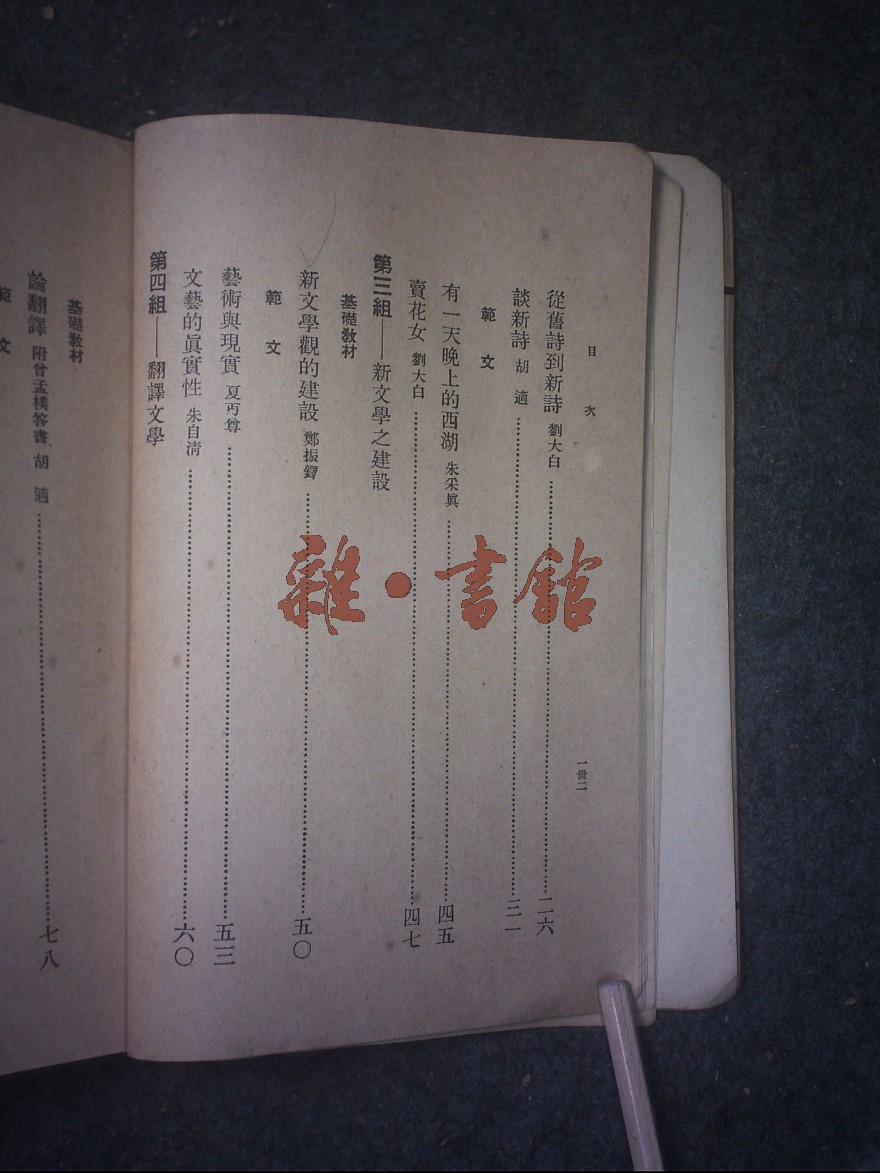 目次
從舊詩到新詩 劉大白……二六
談新詩 胡適……三一
範文
有一天晚上的西湖 朱采真……四五
賣花女 劉大白……四七
第三組——新文學之建設
基礎教材
新文學觀的建設 鄭振鐸……五〇
範文
藝術與現實 夏丏尊……五三
文藝的眞實性 朱自清……六〇
第四組——翻譯文學
一冊二
基礎教材
論翻譯 附曾孟樸答書 胡適……七八
範文
雜·書館